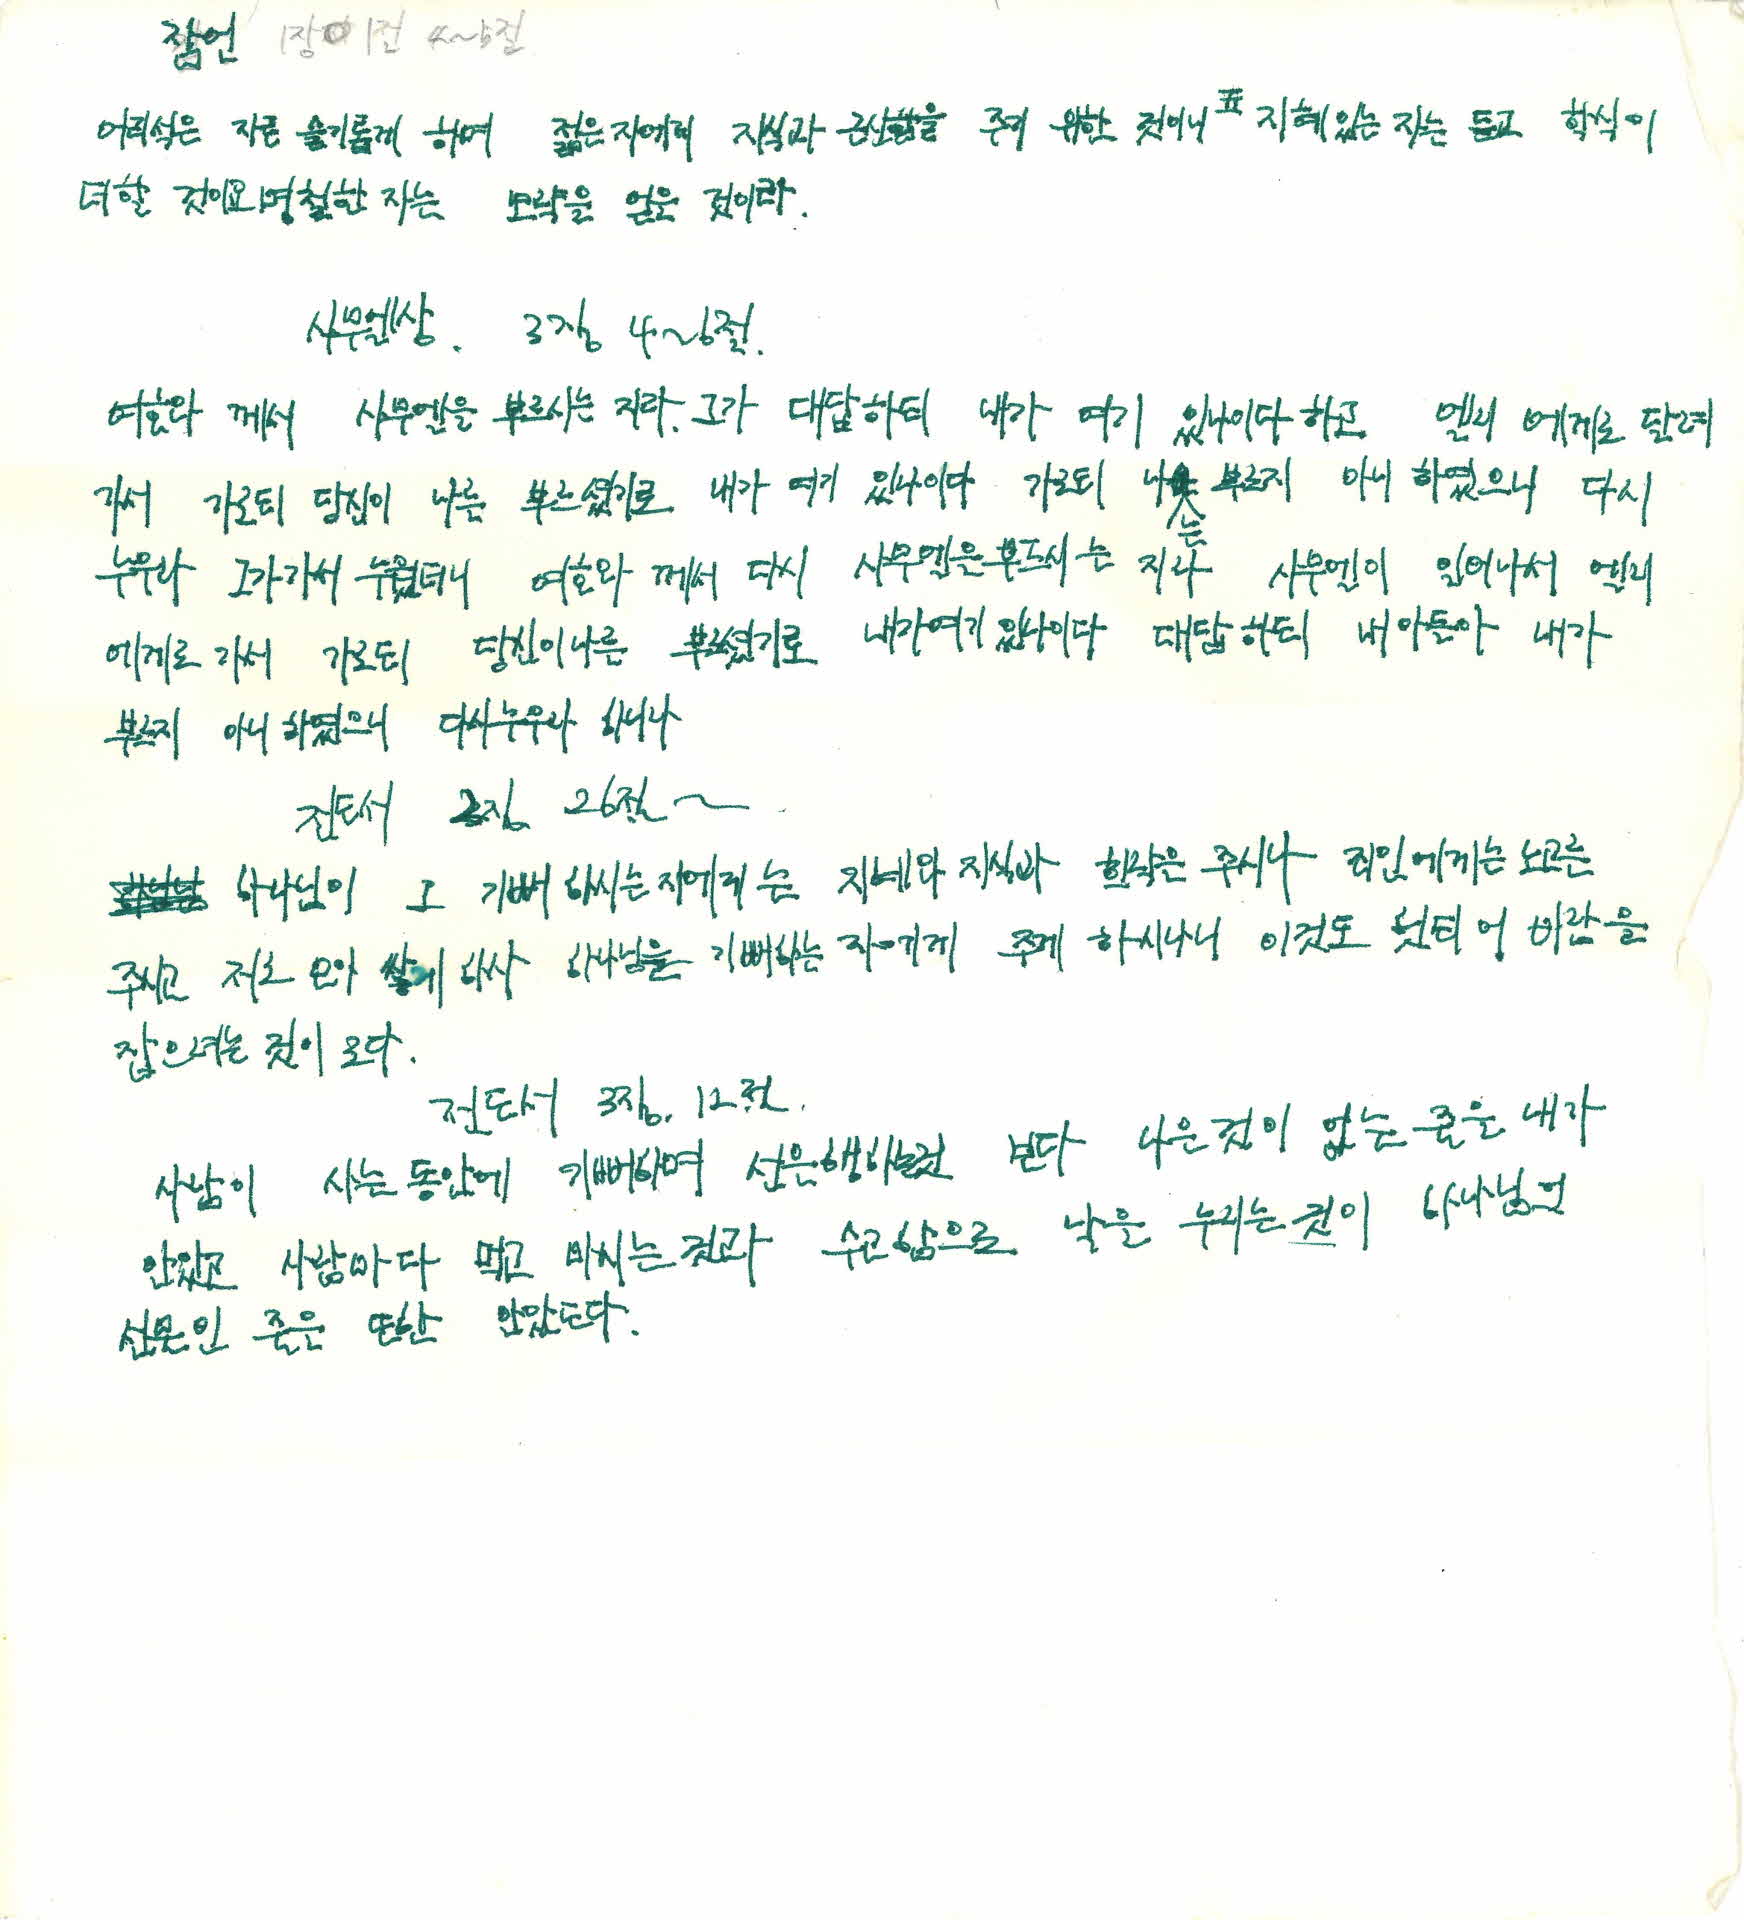 잠언 1장 1절 4~5절
어리석은 자를 슬기롭게 하며 젊은자에게 지식과 근신함을 주기 위한 것이니 지혜있는 자는 듣고 학식이
더할 것이요 명철한 자는 모략을 얻을 것이라.
사무엘상. 3장 4~6절.
여호와 께서 사무엘을 부르시는 지라. 그가 대답하되 내가 여기 있나이다 하고 엘리 에게로 달려
가서 가로되 당신이 나를 부르셨기로 내가 여기 있나이다 가로되 나는 부르지 아니 하였으니 다시
누우라 그가가서 누웠더니 여호와 께서 다시 사무엘을부르시는 지라 사무엘이 일어나서 엘리
에게로 가서 가로되 당신이나를 부르셨기로 내가여기 있나이다 대답하되 내아들아 내가
부르지 아니 하였으니 다시누우라 하니라
전도서 2장 26절~
하나님이 그 기뻐하시는자에게는 지혜와 지식과 희락을 주시나 죄인에게는 노고를
주시고 저로 모아 쌓게 하사 하나님을 기뻐하는 자에게 주게 하시나니 이것도 헛되어 바람을
잡으려는 것이로다.
전도서 3장. 12절.
사람이 사는동안에 기뻐하며 선을행하는것 보다 나은것이 없는줄을 내가
알았고 사람마다 먹고 마시는것과 수고함으로 낙을 누리는것이 하나님의
선물인 줄을 또한 알았도다.